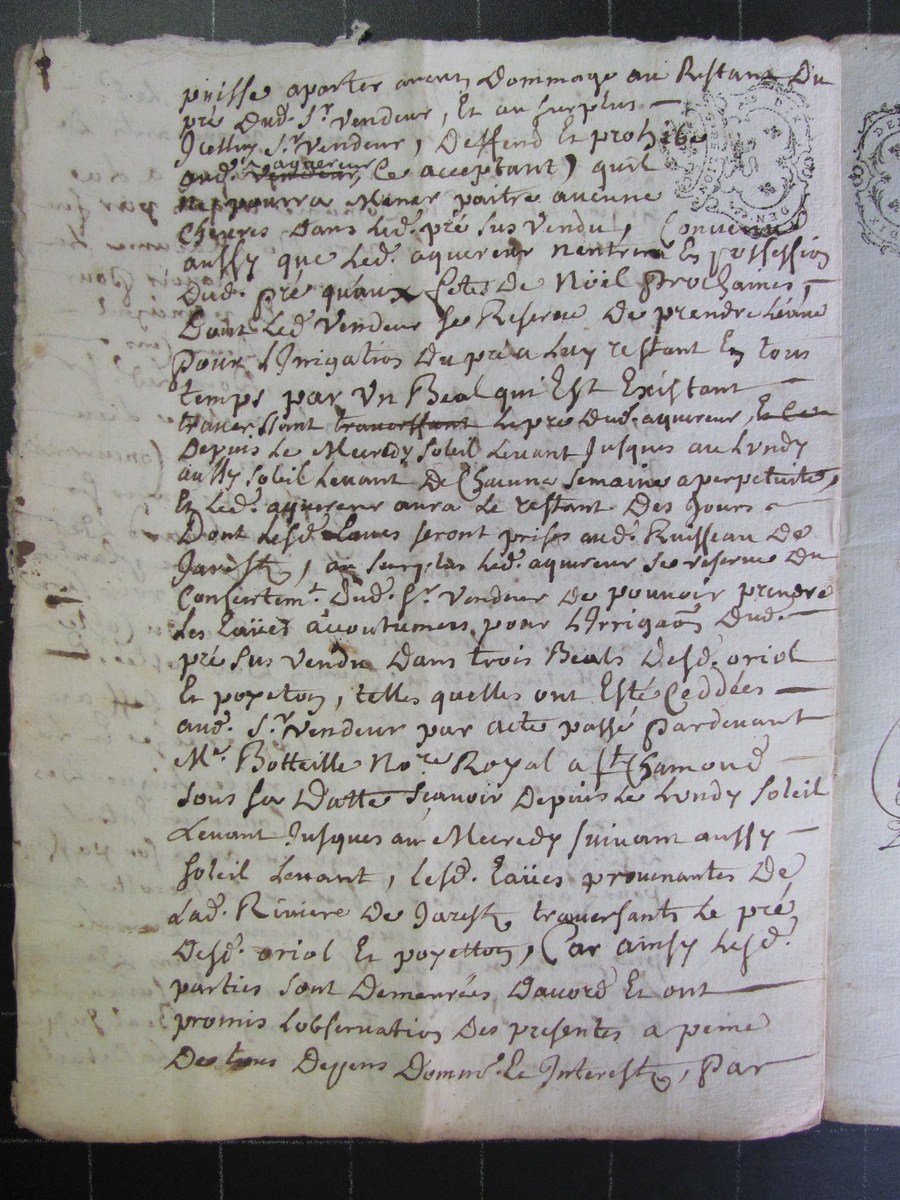 puisse aporter aucun Dommage au Restant Du
pré Dud. Sr. Vendeur, Et au surplus
Icelluy Sr. Vendeur, Deffend Et prohibe
aud. Sr. aquereur vendeur, (le acceptant) qu'il
ne pourra Mener paitre aucune
Chevres Dans Led. pré sus vendu, Convenu
aussy que Led. aquereur n'entrera En possession
Dud. pré qu'aux fetes De Noël Prochaines,
Dont Led. Vendeur se Reserve De prendre L'eaue
Pour L'Irrigation Du pré a Luy restant En tous
temps par Un Béal qui Est Existant
traversant traverssant Le pré Dud. aquereur, et le
Depuis Le Mecredy Soleil Levant Jusques au Lundy
aussy Soleil Levant De Chacune Semaine a perpetuité,
Et Led. aquereur aura Le restant Des Jours
Dont Lesd. Eaues seront prises aud. Ruisseau De
Jarest, au surplus Led. aquereur se reserve Du
Consentemt. Dud. Sr. Vendeur De pouvoir prendre
Les Eaües accoutumees pour L'Irrigaon Dud.
pré sus vendu Dans trois Beals Desd. oriol
Et poyeton, telles quelles ont Esté Ceddées
aud. Sr. Vendeur par acte passé Pardevant
Me. Botteille Nore. Royal a St. Chamond
Sous sa Datte Sçavoir Depuis Le Lundy Soleil
Levant Jusques au Mecredy suivant aussy
Soleil Levant, Lesd. Eaües provenantes De
Lad. Riviere De Jarest traversants Le pré
Desd. oriol Et poyetton, Car ainsy Lesd.
parties sont Demeurées Dacord Et ont
promis L'observation Des presentes a peine
De tous Depens Domm. Et Interest, Par